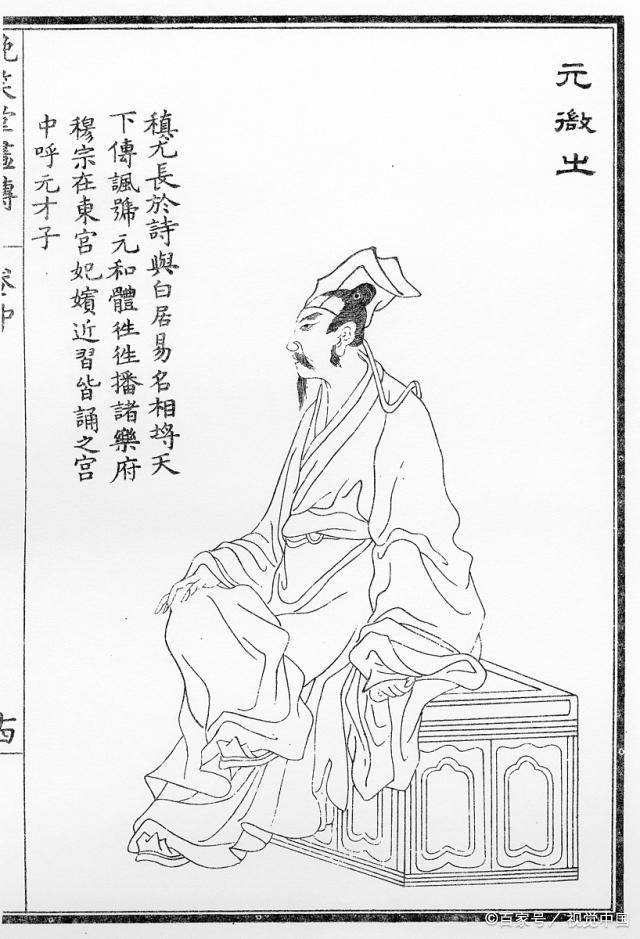 元微之
稹尤長於詩與白居易名相埓天
下傳諷號元和體徃徃播諸樂府
穆宗在東宮妃嬪近習皆誦之宮
中呼元才子
晩笑堂畫傳
卷中
©百家号/视觉中国